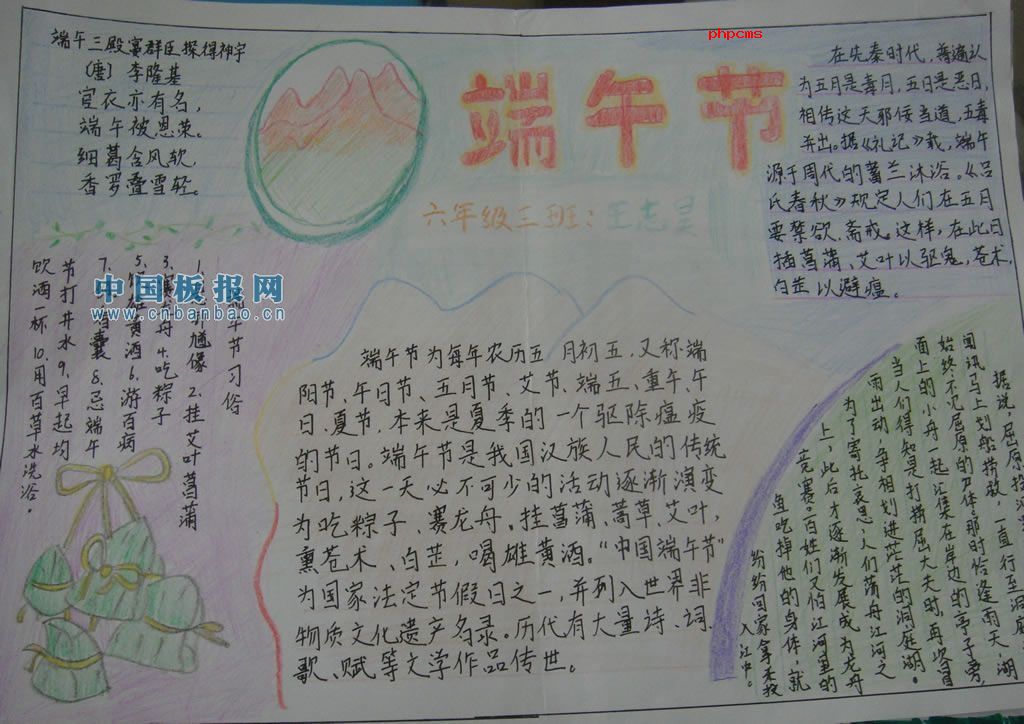 phpcms
端午节
六年级三班：王志昊
端午三殿宴群臣探得神字
（唐）李隆基
宦衣亦有名，
端午被恩荣。
细葛含风软，
香罗叠雪轻。
在先秦时代，普遍认
为五月是毒月，五日是恶日，
相传这天邪佞当道，五毒
并出。据《礼记》载，端午
源于周代的蓄兰沐浴。《吕
氏春秋》规定人们在五月
要禁欲、斋戒。这样，在此日
插菖蒲、艾叶以驱鬼，苍术、
白芷以避瘟。
中国板报网
www.cnbanbao.cn
端午节习俗
馗像 2、挂艾叶菖蒲
3、赛舟 4、吃粽子
5、雄黄酒 6、游百病
7、香囊 8、忌端午
节打井水 9、早起均
饮酒一杯 10、用百草水洗浴。
端午节为每年农历五月初五，又称端
阳节、午日节、五月节、艾节、端五、重午、午
日、夏节，本来是夏季的一个驱除瘟疫
的节日。端午节是我国汉族人民的传统
节日，这一天必不可少的活动逐渐演变
为吃粽子、赛龙舟、挂菖蒲、蒿草、艾叶，
熏苍术、白芷，喝雄黄酒。“中国端午节”
为国家法定节假日之一，并列入世界非
物质文化遗产名录。历代有大量诗、词、
歌、赋等文学作品传世。
据说，屈原投
闻讯马上划船捞救，一直行至洞庭湖
始终不见屈原的尸体。那时恰逢雨天，湖
面上的小舟一起汇集在岸边的亭子旁，
当人们得知是打捞屈大夫时，再次冒
雨出动，争相划进茫茫的洞庭湖。
为了寄托哀思，人们荡舟江河之
上，此后才逐渐发展成为龙舟
竞赛。百姓们又怕江河里的
鱼吃掉他的身体，就
纷纷回家拿来米投
入江中。